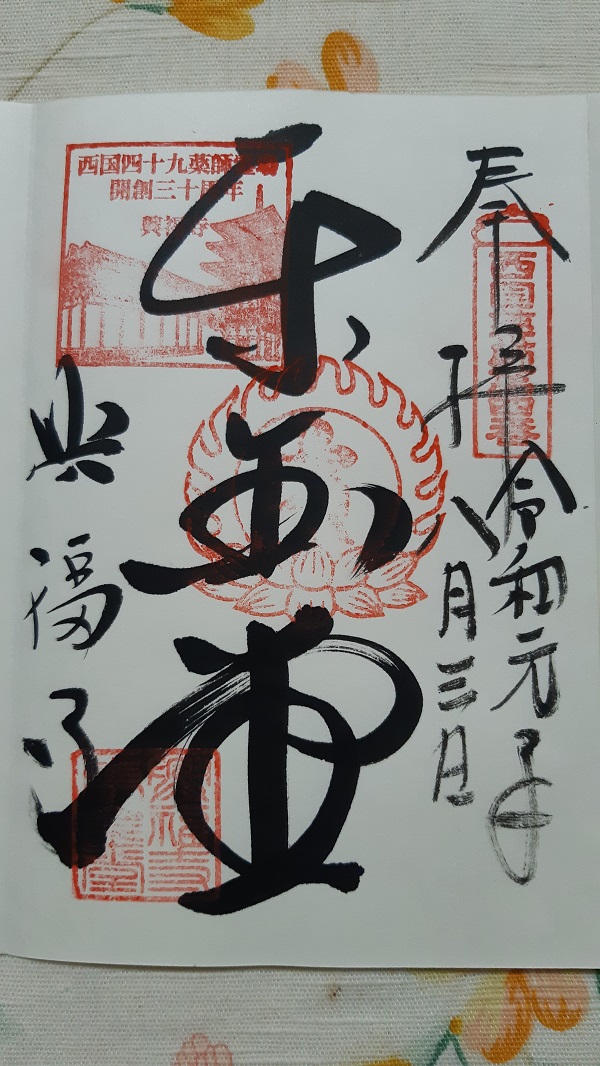 奉拝
令和元年
八月三日
東金堂
興福寺
西国四十九薬師霊場
開創三十周年
興福寺